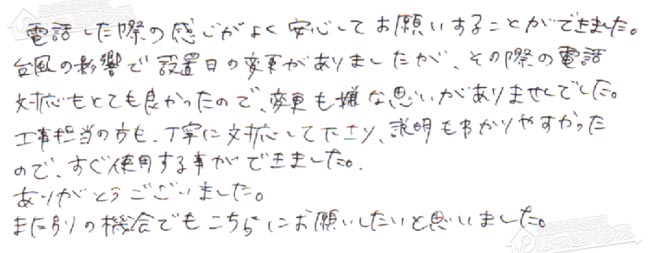 電話した際の感じがよく安心してお願いすることができました。
台風の影響で設置日の変更がありましたが、その際の電話
対応もとても良かったので、変更も嫌な思いがありませんでした。
工事担当の方も、丁寧に対応して下さり、説明も分かりやすかった
ので、すぐ使用する事ができました。
ありがとうございました。
また別の機会でもこちらにお願いしたいと思いました。